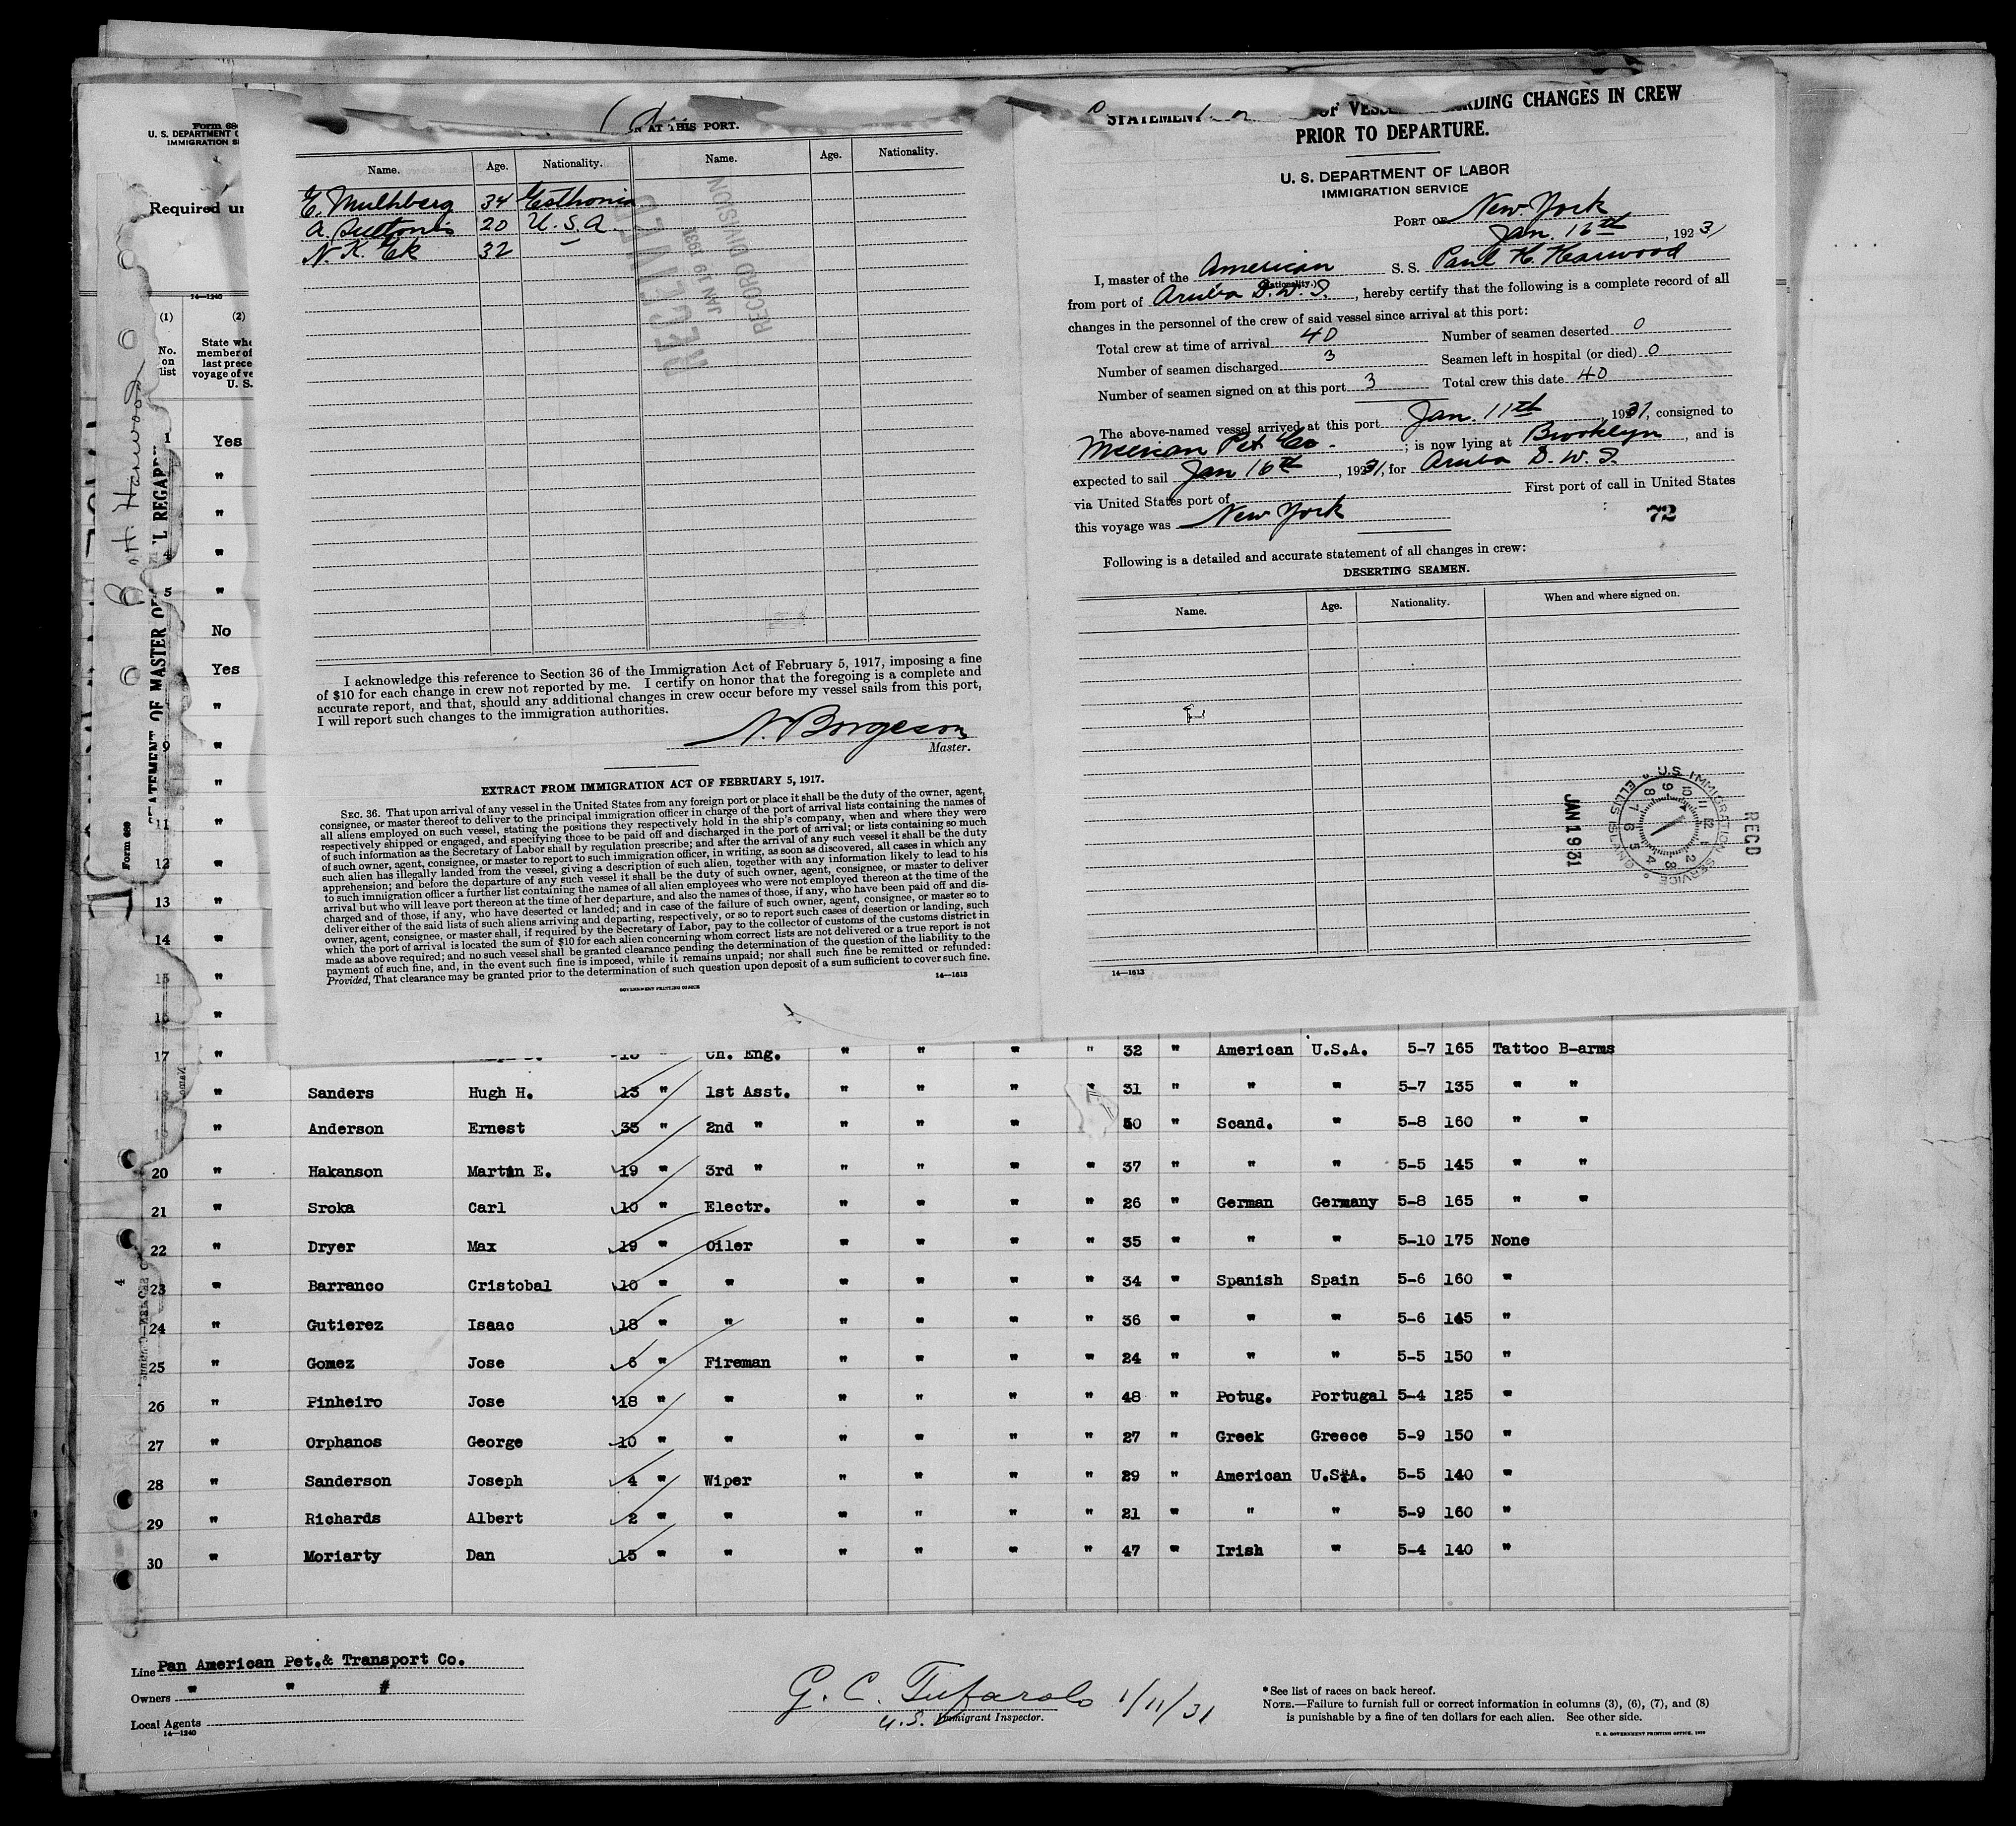 Form 68
U. S. DEPARTMENT
IMMIGRATION S
Required u
14—1240
(1)
No. on list
(2)
State whe
member of
last prece
voyage of ve
U. S.
STATEMENT OF MASTER OF
L REGARD
Form 689
P. H. Harwood
1 Yes
"
"
"
5 "
No
Yes
"
9 "
"
11 "
12 "
13 "
14 "
15 "
16 "
N AT THIS PORT.
Name. Age. Nationality. Name. Age. Nationality.
E. Mulhberg 34 Esthonia
A. Suttonis 20 U.S.A.
N. K. Ek 32 —
RECEIVED
JAN 19 1931
RECORD DIVISION
I acknowledge this reference to Section 36 of the Immigration Act of February 5, 1917, imposing a fine
of $10 for each change in crew not reported by me. I certify on honor that the foregoing is a complete and
accurate report, and that, should any additional changes in crew occur before my vessel sails from this port,
I will report such changes to the immigration authorities.
N. Borgeson
Master.
EXTRACT FROM IMMIGRATION ACT OF FEBRUARY 5, 1917.
SEC. 36. That upon arrival of any vessel in the United States from any foreign port or place it shall be the duty of the owner, agent,
consignee, or master thereof to deliver to the principal immigration officer in charge of the port of arrival lists containing the names of
all aliens employed on such vessel, stating the positions they respectively hold in the ship's company, when and where they were
respectively shipped or engaged, and specifying those to be paid off and discharged in the port of arrival; or lists containing so much
of such information as the Secretary of Labor shall by regulation prescribe; and after the arrival of any such vessel it shall be the duty
of such owner, agent, consignee, or master to report to such immigration officer, in writing, as soon as discovered, all cases in which any
such alien has illegally landed from the vessel, giving a description of such alien, together with any information likely to lead to his
apprehension; and before the departure of any such vessel it shall be the duty of such owner, agent, consignee, or master to deliver
to such immigration officer a further list containing the names of all alien employees who were not employed thereon at the time of the
arrival but who will leave port thereon at the time of her departure, and also the names of those, if any, who have been paid off and dis-
charged and of those, if any, who have deserted or landed; and in case of the failure of such owner, agent, consignee, or master so to
deliver either of the said lists of such aliens arriving and departing, respectively, or so to report such cases of desertion or landing, such
owner, agent, consignee, or master shall, if required by the Secretary of Labor, pay to the collector of customs of the customs district in
which the port of arrival is located the sum of $10 for each alien concerning whom correct lists are not delivered or a true report is not
made as above required; and no such vessel shall be granted clearance pending the determination of the question of the liability to the
payment of such fine, and, in the event such fine is imposed, while it remains unpaid; nor shall such fine be remitted or refunded:
Provided, That clearance may be granted prior to the determination of such question upon deposit of a sum sufficient to cover such fine.
14—1613
GOVERNMENT PRINTING OFFICE
STATEMENT OF VESS RDING CHANGES IN CREW
PRIOR TO DEPARTURE.
U. S. DEPARTMENT OF LABOR
IMMIGRATION SERVICE
PORT OF New York
Jan. 16th, 1923 1
I, master of the American S. S. Paul H. Harwood
(Nationality.)
from port of Aruba D.W.I., hereby certify that the following is a complete record of all
changes in the personnel of the crew of said vessel since arrival at this port:
Total crew at time of arrival 40 Number of seamen deserted 0
Number of seamen discharged 3 Seamen left in hospital (or died) 0
Number of seamen signed on at this port 3 Total crew this date 40
The above-named vessel arrived at this port Jan. 11th, 1931, consigned to
Mexican Pet Co. ; is now lying at Brooklyn, and is
expected to sail Jan 16th, 1931, for Aruba D. W. I.
via United States port of First port of call in United States
this voyage was New York
72
Following is a detailed and accurate statement of all changes in crew:
DESERTING SEAMEN.
Name. Age. Nationality. When and where signed on.
REC'D
U.S. IMMIGRATION SERVICE
ELLIS ISLAND
JAN 19 31
14—1613
17 " Ch. Eng. " " " " 32 " American U.S.A. 5-7 165 Tattoo B-arms
" Sanders Hugh H. 13 " 1st Asst. " " " " 31 " " " 5-7 135 " "
" Anderson Ernest 35 " 2nd " " " " 50 " Scand. " 5-8 160 " "
20 " Hakanson Martin E. 19 " 3rd " " " " " 37 " " " 5-5 145 " "
21 " Sroka Carl 10 " Electr. " " " " 26 " German Germany 5-8 165 " "
22 " Dryer Max 19 " Oiler " " " " 35 " " " 5-10 175 None
23 " Barranco Cristobal 10 " " " " " " 34 " Spanish Spain 5-6 160 "
24 " Gutierez Isaac 18 " " " " " " 36 " " " 5-6 145 "
25 " Gomez Jose 6 " Fireman " " " " 24 " " " 5-5 150 "
26 " Pinheiro Jose 18 " " " " " " 48 " Potug. Portugal 5-4 125 "
27 " Orphanos George 10 " " " " " " 27 " Greek Greece 5-9 150 "
28 " Sanderson Joseph 4 " Wiper " " " " 29 " American U.S.A. 5-5 140 "
29 " Richards Albert 2 " " " " " " 21 " " " 5-9 160 "
30 " Moriarty Dan 15 " " " " " " 47 " Irish " 5-4 140 "
Line Pan American Pet.& Transport Co.
Owners " " #
Local Agents
14—1240
G. C. Tufarolo 1/11/31
U.S. Immigrant Inspector.
*See list of races on back hereof.
NOTE.—Failure to furnish full or correct information in columns (3), (6), (7), and (8)
is punishable by a fine of ten dollars for each alien. See other side.
U. S. GOVERNMENT PRINTING OFFICE, 1929